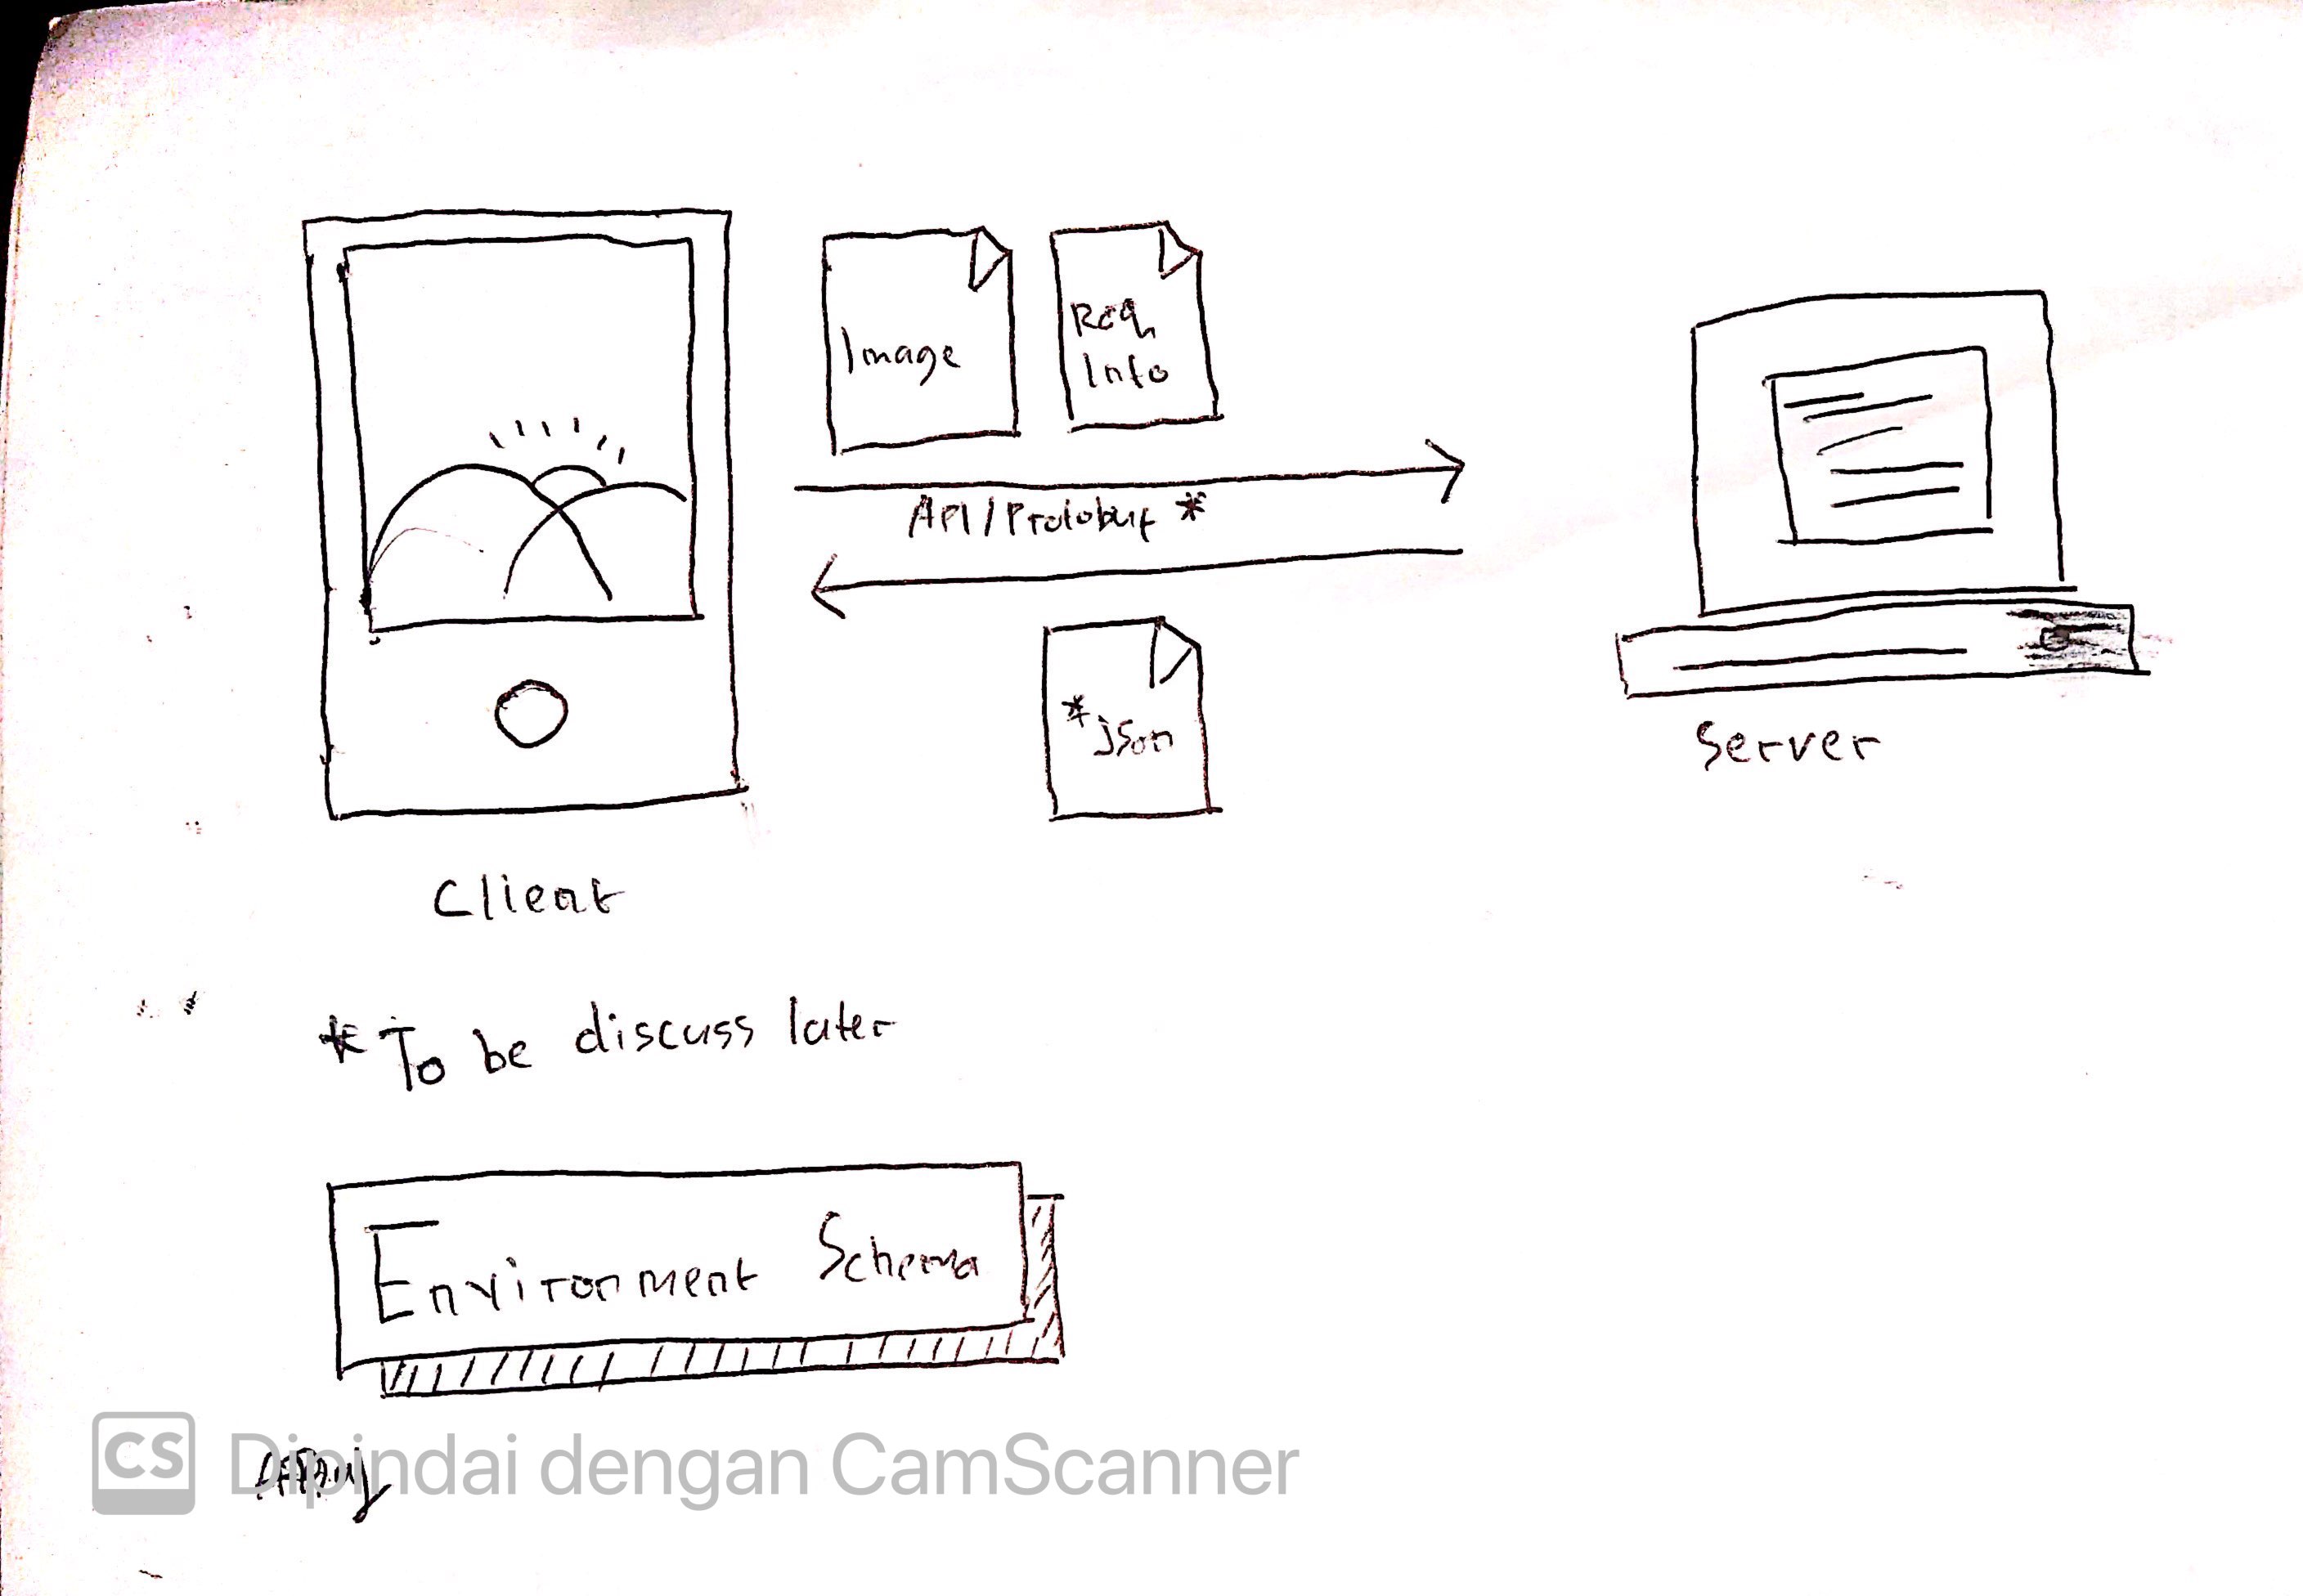 Image
Req
Info
API/Protobuf *
*json
Server
Client
*To be discuss later
Environment Schema
CS Dipindai dengan CamScanner